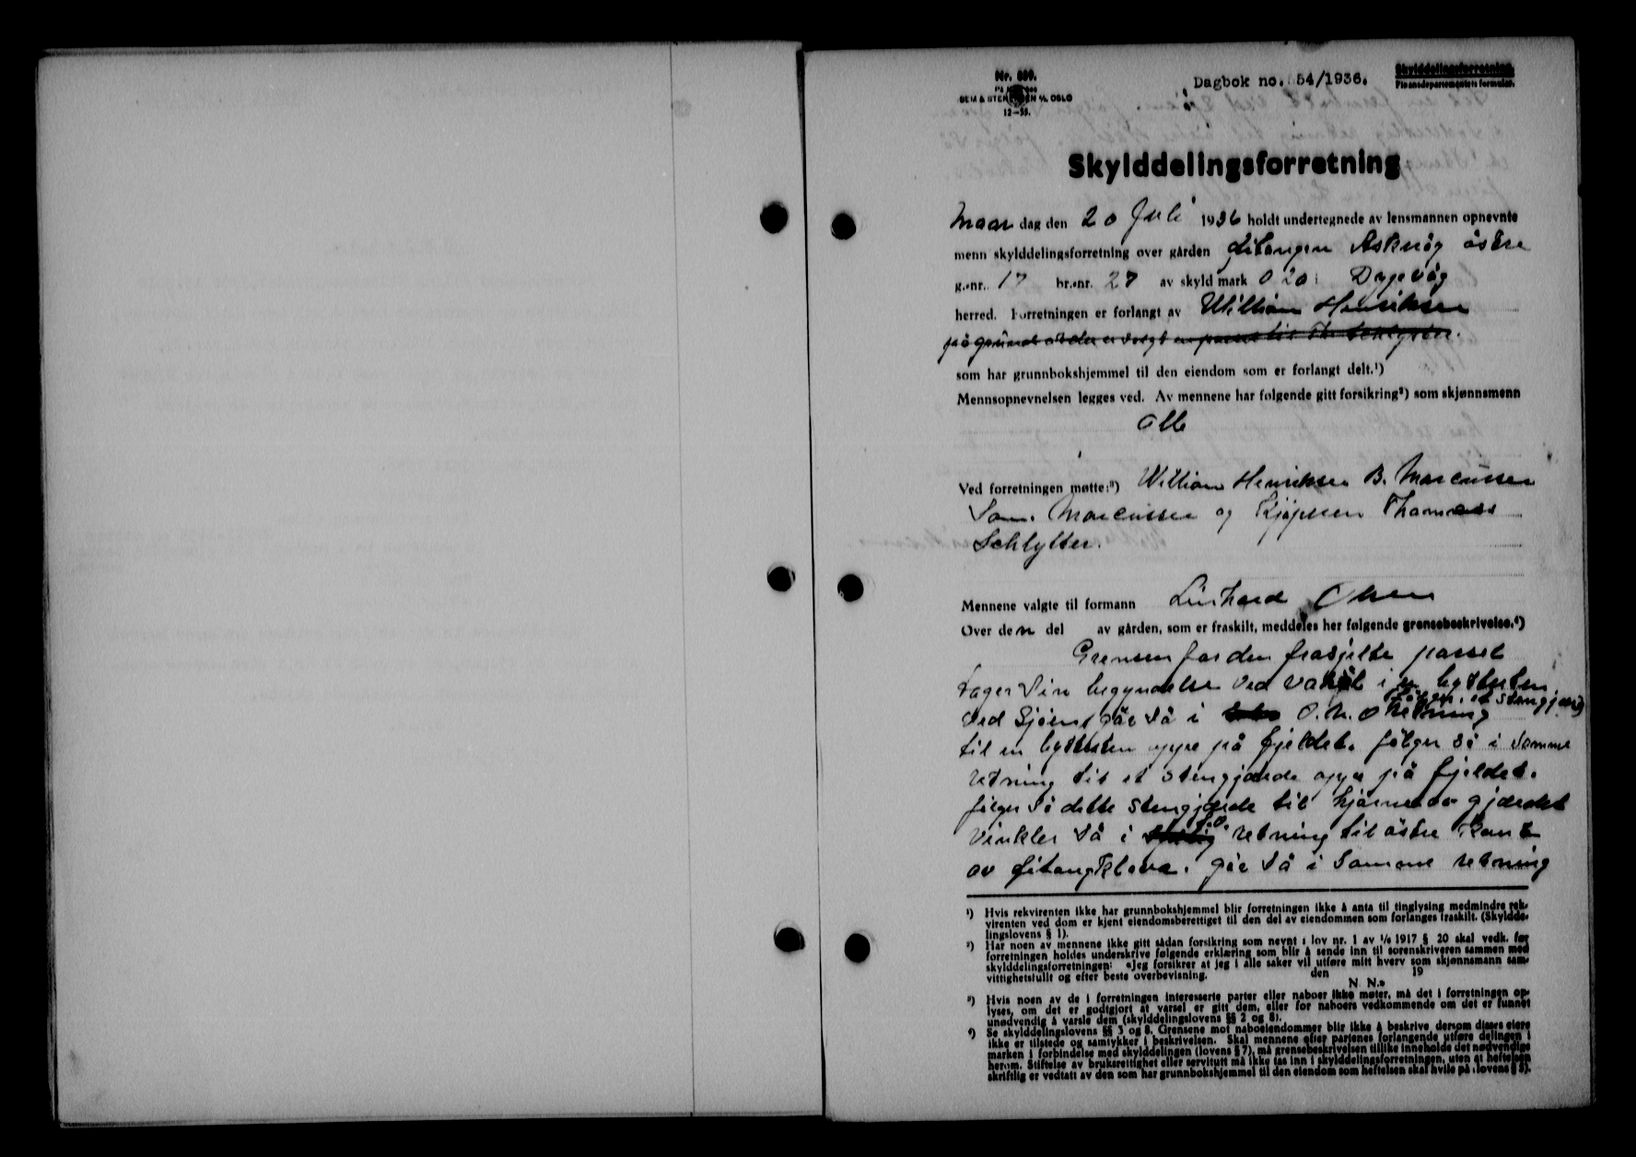 Nr. 889.
SEM & STENERSEN A/S OSLO
12-35.
Dagbok no. 54/1936.
Skylddelingsforretning.
Finansdepartementets formular.
Skylddelingsforretning
Maan dag den 20 Juli 1936 holdt undertegnede av lensmannen opnevnte
menn skylddelingsforretning over gården Gitangen Askerøy östre
g.-nr. 17 br.-nr. 27 av skyld mark 0 20 i Dypvåg
herred. Forretningen er forlangt av William Henriksen
på grund at der er solgt en parsel til Th. Schlytter.
som har grunnbokshjemmel til den eiendom som er forlangt delt.¹)
Mennsopnevnelsen legges ved. Av mennene har følgende gitt forsikring²) som skjønnsmenn
alle
Ved forretningen møtte:³) William Henriksen B. Marcussen
Sam. Marcussen og Kjøperen Thomas
Schlytter.
Mennene valgte til formann Linhard Olsen
Over den del av gården, som er fraskilt, meddeles her følgende grensebeskrivelse.⁴)
Grensen for den fraskjelte parsel
tager sin begyndelse ved i en byttesten
ved Sjöen, går så i O. N. O retning følger et stengjærde
til en byttesten oppe på fjeldet. følger så i samme
retning til et stengjærde oppe på fjeldet.
følger så dette stengjærde til hjørnet av gjærdet
Vinkler så i S.O. retning til östre Kant
av Gitangkleva. går så i Samme retning
¹) Hvis rekvirenten ikke har grunnbokshjemmel blir forretningen ikke å anta til tinglysing medmindre rek-
virenten ved dom er kjent eiendomsberettiget til den del av eiendommen som forlanges fraskilt. (Skyldde-
lingslovens § 1).
²) Har noen av mennene ikke gitt sådan forsikring som nevnt i lov nr. 1 av 1/6 1917 § 20 skal vedk. før
forretningen holdes underskrive følgende erklæring som blir å sende inn til sorenskriveren sammen med
skylddelingsforretningen: «Jeg forsikrer at jeg i alle saker vil utføre mitt hverv som skjønnsmann sam-
vittighetsfullt og efter beste overbevisning. den 19
N. N.»
³) Hvis noen av de i forretningen interesserte parter eller naboer ikke møter, må det i forretningen op-
lyses, om det er godtgjort at varsel er gitt dem, eller for naboers vedkommende om det er funnet
unødvendig å varsle dem (skylddelingslovens §§ 2 og 8).
⁴) Se skylddelingslovens §§ 3 og 8. Grensene mot naboeiendommer blir ikke å beskrive, dersom disses eiere
ikke er tilstede og samtykker i beskrivelsen. Skal mennene efter partenes forlangende utføre delingen i
marken i forbindelse med skylddelingen (lovens § 7), må grensebeskrivelsen tillike inneholde det nødvendige
herom. Stiftelse av bruksrettighet eller servitutt må ikke tas inn i skylddelingsforretningen, uten at heftelsen
skriftlig er vedtatt av den som har grunnbokshjemmel til den eiendom som heftelsen skal hvile på (lovens § 3).